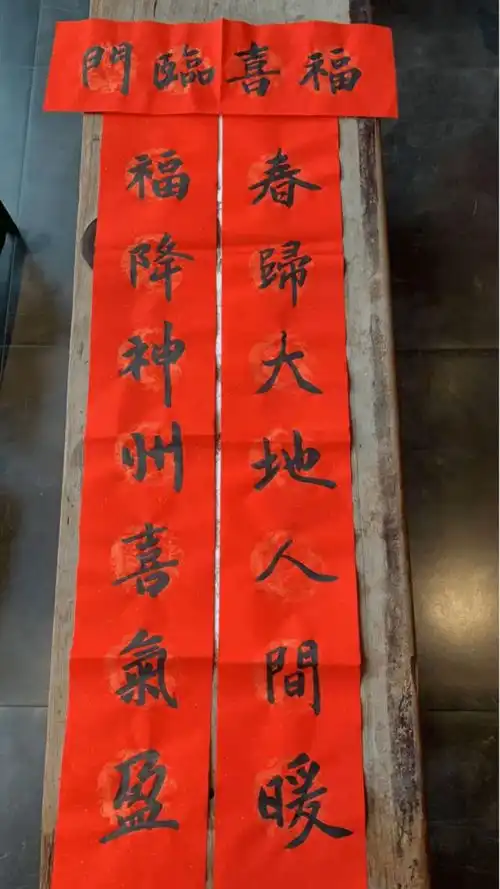 福喜臨門
春歸大地人間暖
福降神州喜氣盈